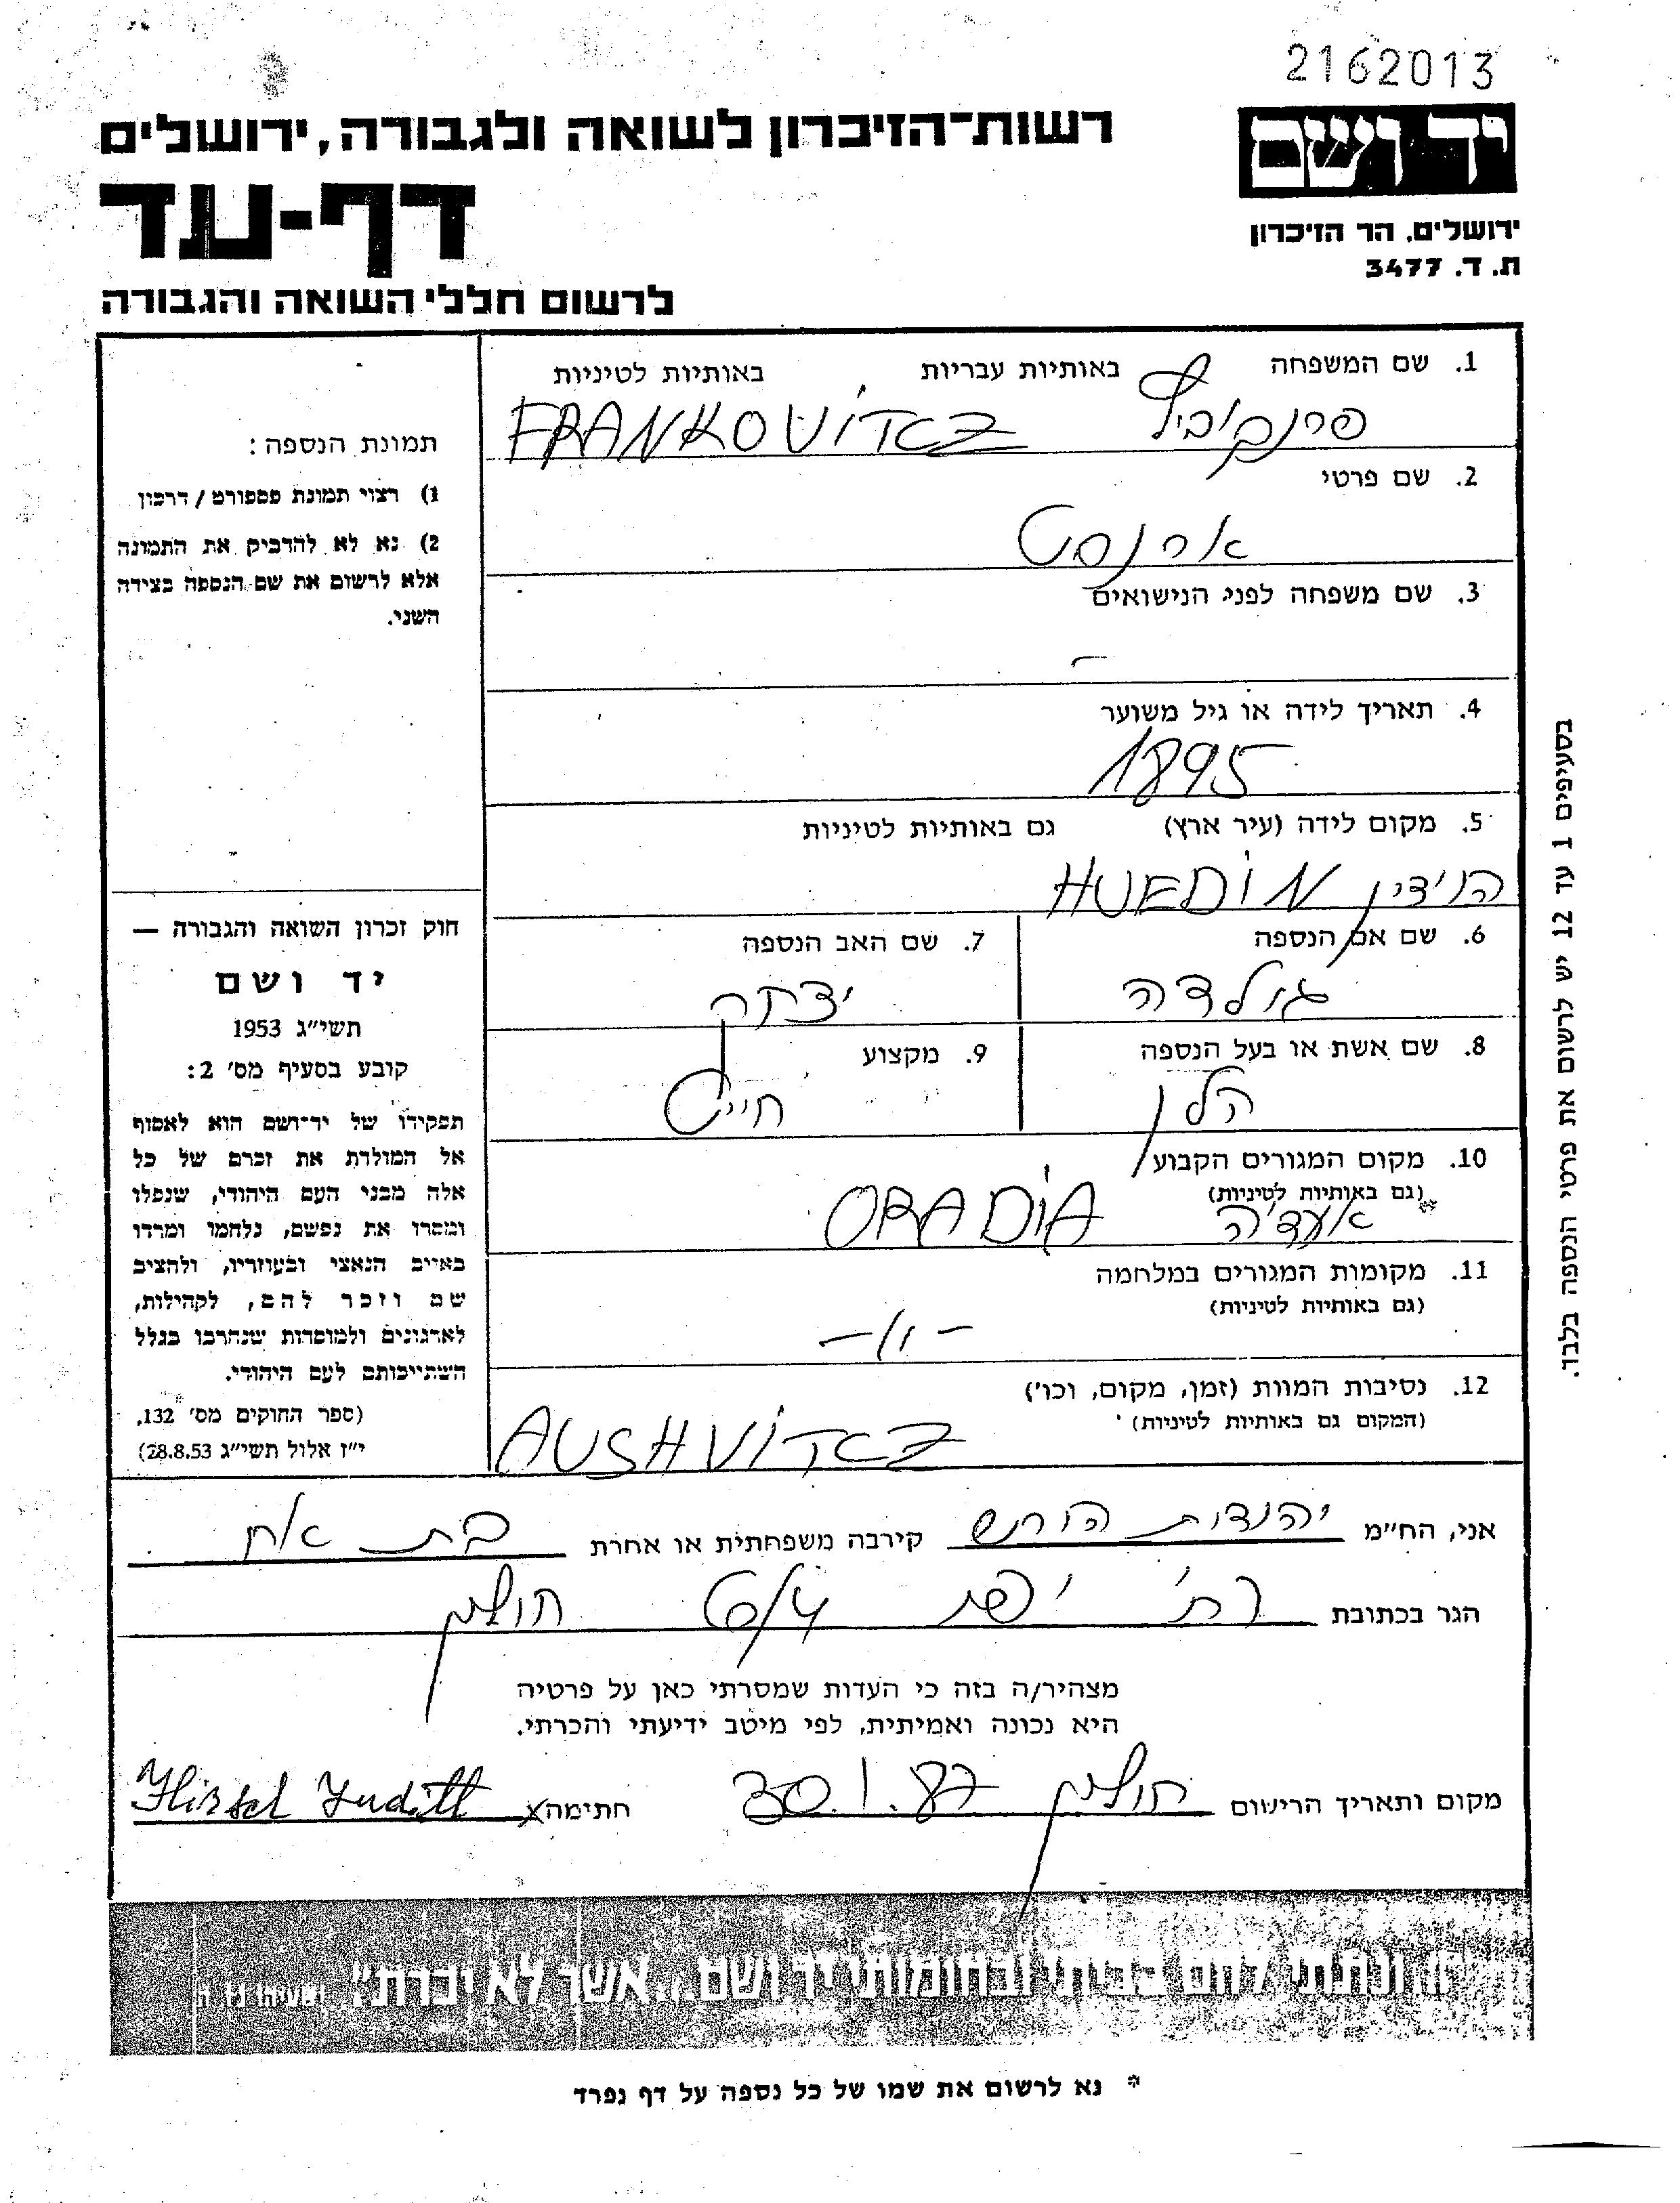 2162013
יד ושם
רשות־הזיכרון לשואה ולגבורה, ירושלים
דף-עד
ירושלים, הר הזיכרון
ת. ד. 3477
לרשום חללי השואה והגבורה
1. שם המשפחה באותיות עבריות באותיות לטיניות
פרנקוביץ FRANKOVITZ
2. שם פרטי
ארנסט
3. שם משפחה לפני הנישואים
-
4. תאריך לידה או גיל משוער
1895
5. מקום לידה (עיר ארץ) גם באותיות לטיניות
HUEDIN
6. שם אם הנספה 7. שם האב הנספה
גולדה יצחק
8. שם אשת או בעל הנספה 9. מקצוע
הלן חייט
10. מקום המגורים הקבוע
(גם באותיות לטיניות)
ORADIA
11. מקומות המגורים במלחמה
(גם באותיות לטיניות)
-"-
12. נסיבות המוות (זמן, מקום, וכו')
(המקום גם באותיות לטיניות)
AUSHVITZ
תמונת הנספה:
1) רצוי תמונת פספורט / דרכון
2) נא לא להדביק את התמונה
אלא לרשום את שם הנספה בצידה
השני.
חוק זכרון השואה והגבורה —
יד ושם
תשי״ג 1953
קובע בסעיף מס׳ 2:
תפקידו של יד־ושם הוא לאסוף
אל המולדת את זכרם של כל
אלה מבני העם היהודי, שנפלו
ומסרו את נפשם, נלחמו ומרדו
באויב הנאצי ובעוזריו, ולהציב
שם וזכר להם, לקהילות,
לארגונים ולמוסדות שנחרבו בגלל
השתייכותם לעם היהודי.
(ספר החוקים מס׳ 132,
י״ז אלול תשי״ג 28.8.53)
בסעיפים 1 עד 12 יש לרשום את פרטי הנספה בלבד.
אני, הח״מ יהודית הירש קירבה משפחתית או אחרת בת אח
הגר בכתובת רח׳ חולון
מצהיר/ה בזה כי העדות שמסרתי כאן על פרטיה
היא נכונה ואמיתית, לפי מיטב ידיעתי והכרתי.
מקום ותאריך הרישום חולון 30.1.87 חתימה Hirsch Judith
״...ונתתי להם בביתי ובחומותי יד ושם...אשר לא יכרת״. ישעיהו נו, ה
* נא לרשום את שמו של כל נספה על דף נפרד